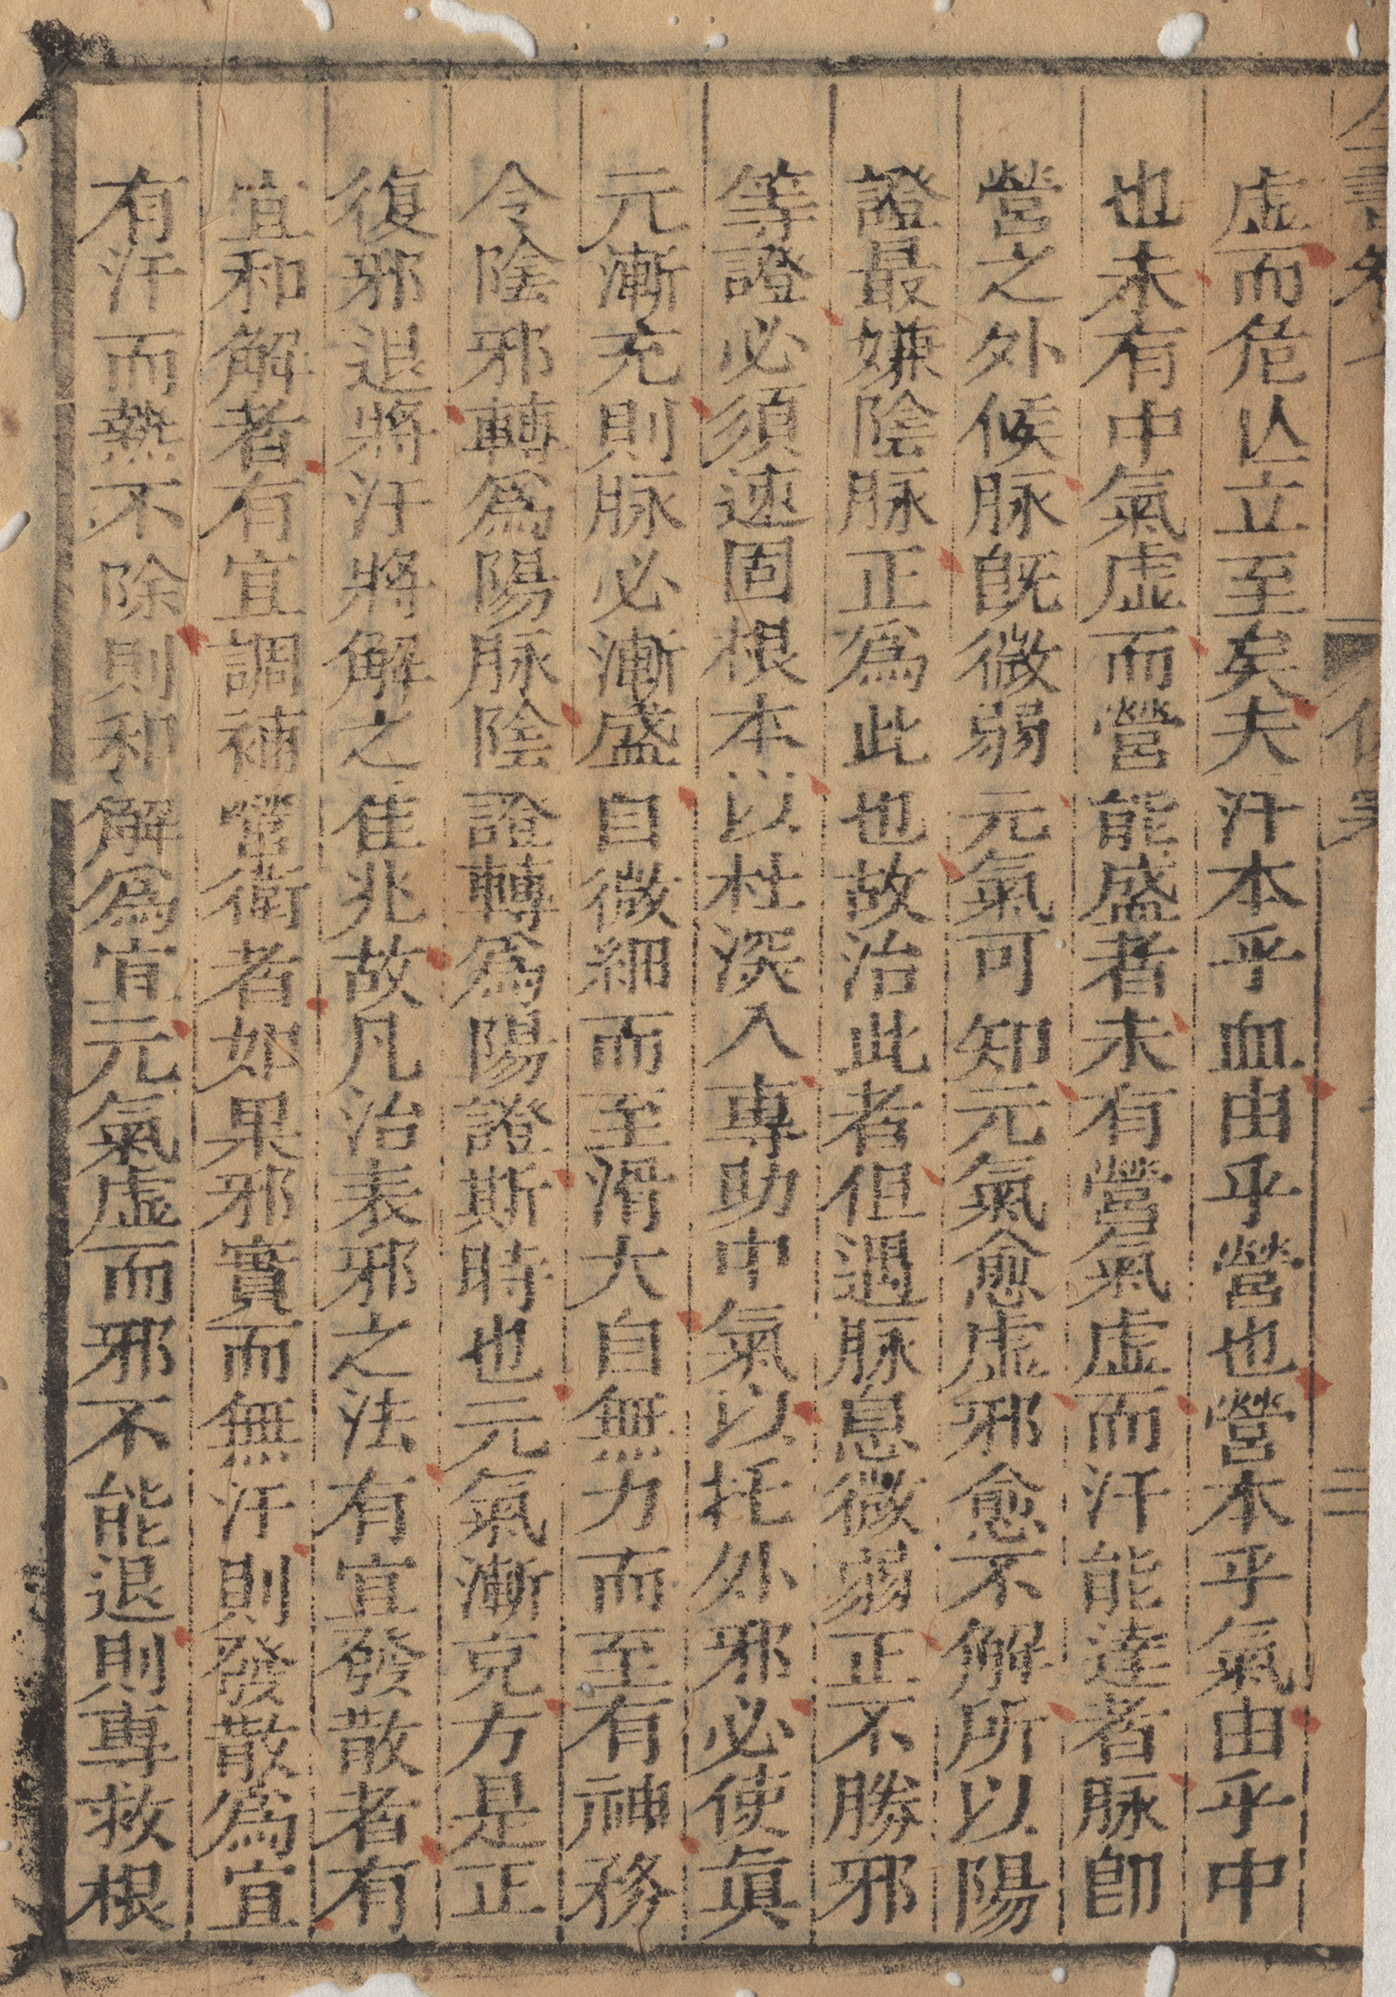 虛而危亾立至矣夫汗本乎血由乎營也營本乎氣由乎中
也未有中氣虛而營能盛者未有營氣虛而汗能達者脉即
營之外候脉旣微弱元氣可知元氣愈虛邪愈不解所以陽
證最嫌陰脉正爲此也故治此者但遇脉息微弱正不勝邪
等證必須速固根本以杜深入專助中氣以托外邪必使眞
元漸充則脉必漸盛自微細而至滑大自無力而至有神務
令陰邪轉爲陽脉陰證轉爲陽證斯時也元氣漸充方是正
復邪退將汗將解之佳兆故凡治表邪之法有宜發散者有
宜和解者有宜調補營衛者如果邪實而無汗則發散爲宜
有汗而熱不除則和解爲宜元氣虛而邪不能退則專救根